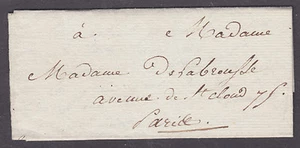 à Madame
Madame
avenue de St cloud 75.
Paris.